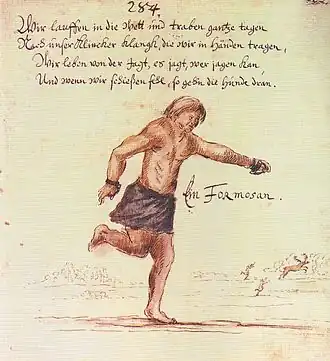 284.
Wir lauffen in die Wett und traben gantze tagen
Nach unser Klincker Klangh, die wir in händen tragen,
Wir leben von der Jagt, es jagt, wer jagen kan
Und wenn wir schießen fehl, so gehn die Hunde dran.
Ein Formosan.